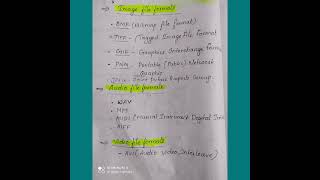 Image file formats
- BMP (Bitmap file format)
- TIFF - Tagged Image File Format
- GIF - Graphics Interchange Form
- PNM - Portable (Public) Network
Graphic
JPEG - Joint Picture Experts Group.
Audio file formats
- WAV
- MP3
- MIDI (Musical Instrument Digital Int
- AIFF
Video file formats
- AVI (Audio Video Interleave)